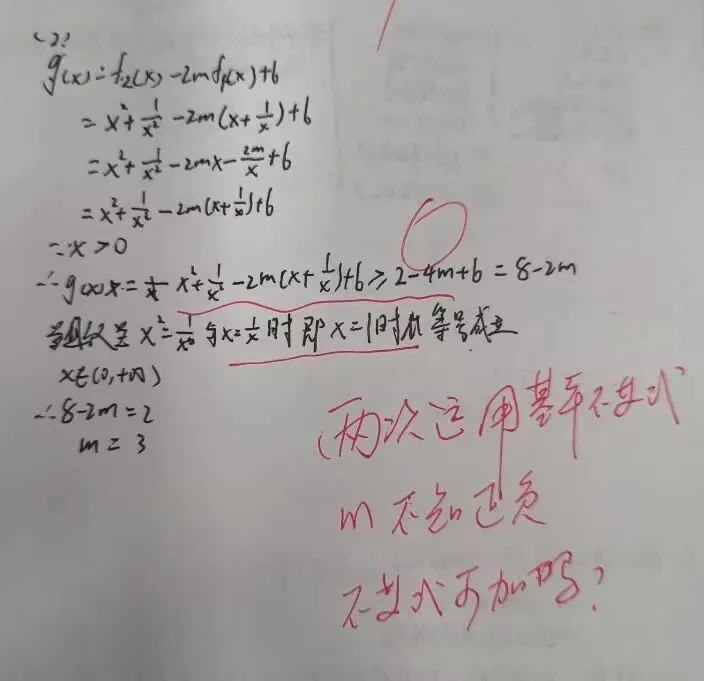 (2)
g(x)=f₂(x)-2mf₁(x)+6
=x²+1/x²-2m(x+1/x)+6
=x²+1/x²-2mx-2m/x+6
=x²+1/x²-2m(x+1/x)+6
∵x>0
∴g(x)=x²+1/x²-2m(x+1/x)+6≥2-4m+6=8-2m
当且仅当x²=1/x²与x=1/x时即x=1时 等号成立
x∈(0,+∞)
∴8-2m=2
m=3
两次运用基本不等式
m不知正负
不等式可加吗?